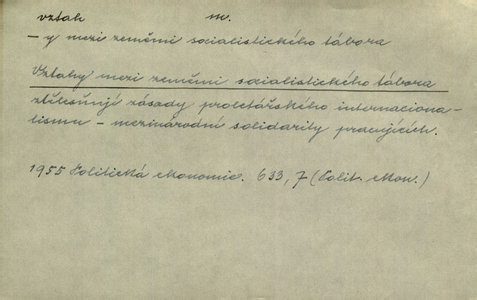 vztah m.
- y mezi zeměmi socialistického tábora
Vztahy mezi zeměmi socialistického tábora
ztělesňují zásady proletářského internaciona-
lismu - mezinárodní solidarity pracujících.
1955 Politická ekonomie. 633, 7 (Polit. ekon.)